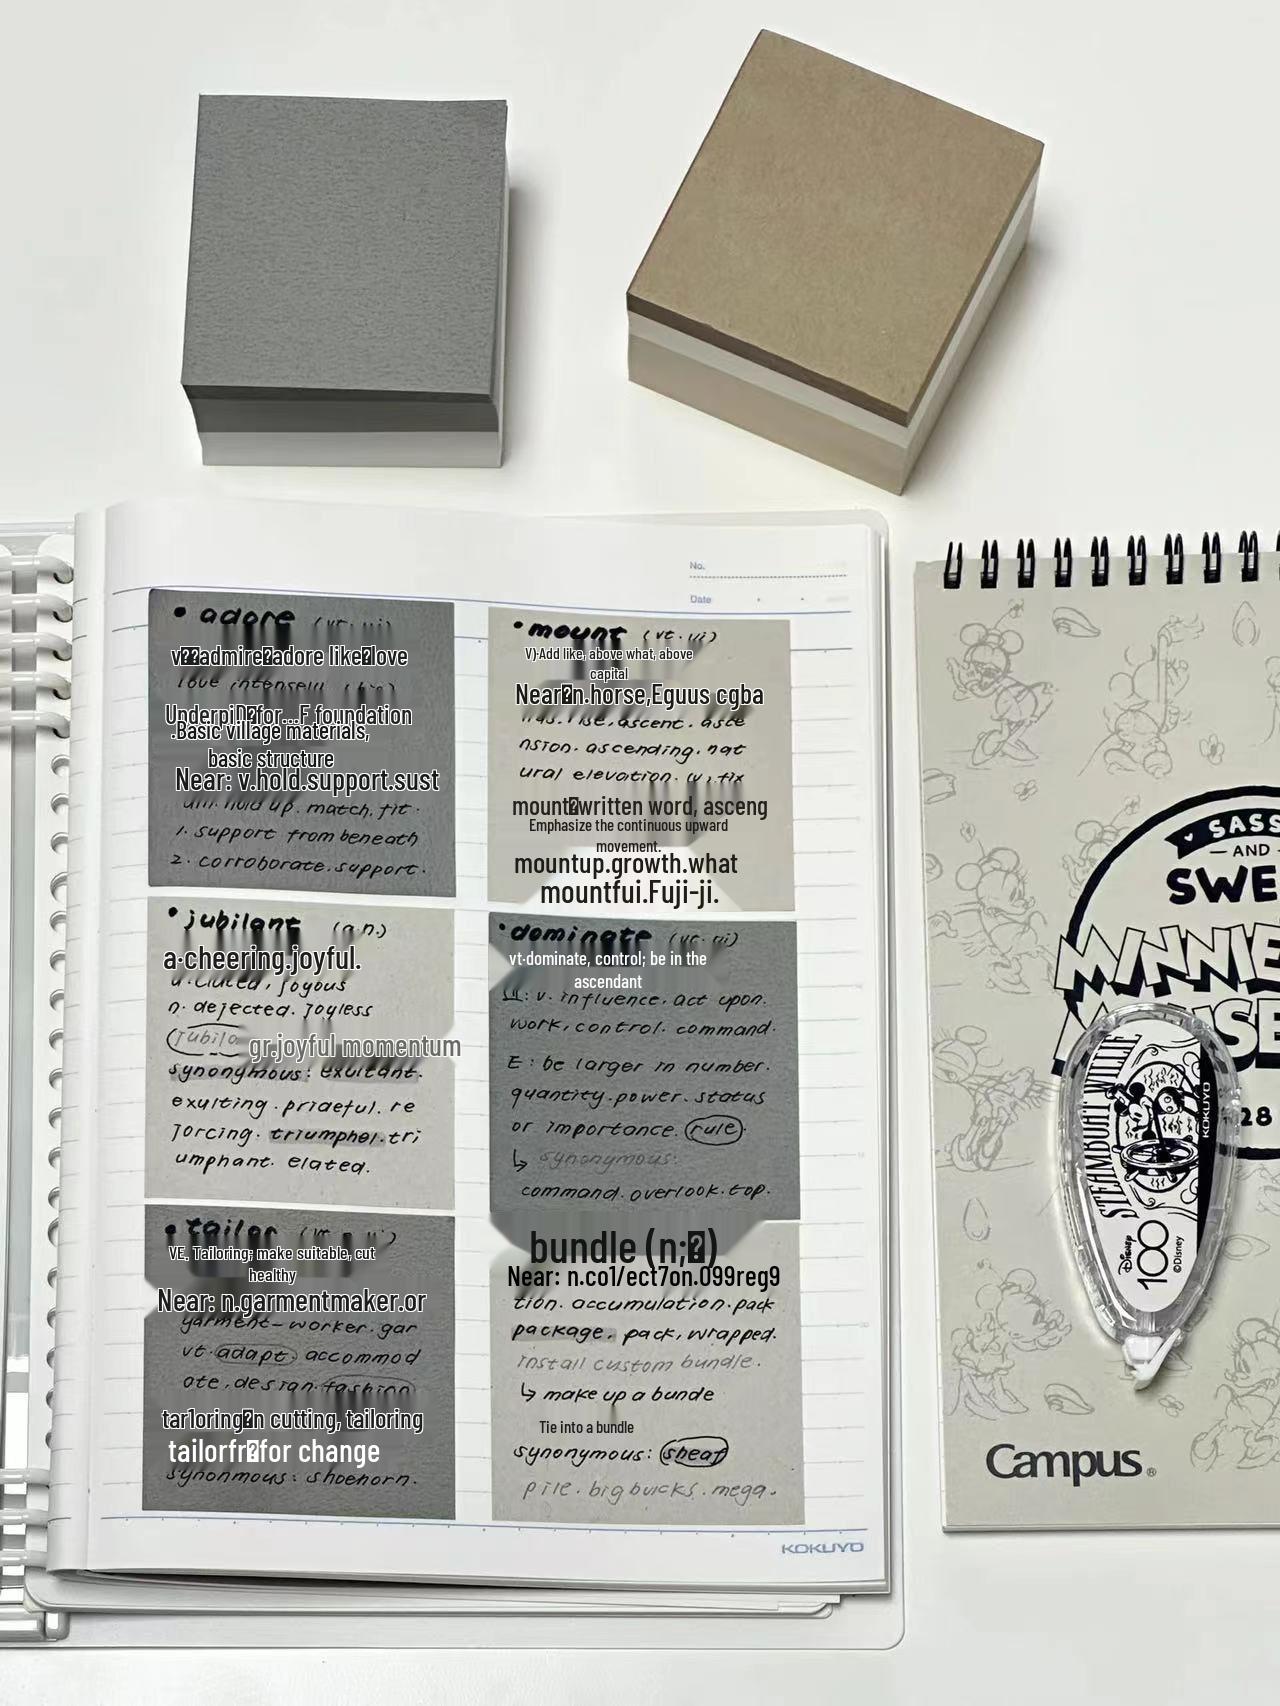 No.
Date
• adore (vt. vi)
admire adore like love
love intensely
Underpin for...F foundation
.Basic village materials,
basic structure
Near: v.hold.support.sust
ain. hold up. match. fit.
1. support from beneath
2. corroborate.support.
• mount (vt. vi)
V}-Add like, above what, above
capital
Near n.horse,Eguus cgba
rise, ascent. asce
nsion. ascending. nat
ural elevation. v. fix
mount written word, asceng
Emphasize the continuous upward
movement.
mountup.growth.what
mountfui.Fuji-ji.
• jubilant (a n.)
a·cheering.joyful.
joyous
n. dejected. Joyless
jubila
gr.joyful momentum
synonymous: exultant.
exulting. prideful. re
Jorcing. triumphal. tri
umphant. elated.
• dominate (vt. vi)
vt·dominate, control; be in the
ascendant
v. influence. act upon.
work, control. command.
E: be larger in number.
quantity.power. status
or importance. rule.
↳ synonymous:
command. overlook. top.
• tailor
VE. Tailoring; make suitable, cut
healthy
Near: n.garmentmaker.or
garment-worker. gar
vt. adapt. accommod
ate, design. fashion
tar1oring n cutting, tailoring
tailorfr for change
synonmous: shoehorn.
bundle (n; )
Near: n.co1/ect7on.099reg9
tion. accumulation. pack
package. pack, wrapped.
install custom bundle.
↳ make up a bunde
Tie into a bundle
synonymous: sheaf
pile. big bucks. mega.
KOKUYO
SASS
— AND —
SWE
MINNIE
28
STEAMBOAT WILLIE
KOKUYO
Disney
100
©Disney
Campus®